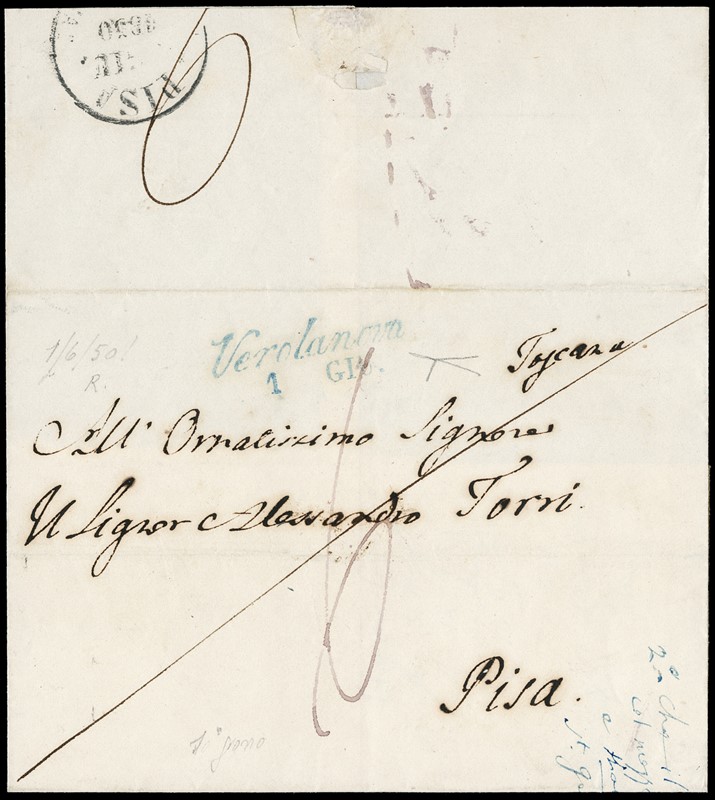 PISA
GIU
1850
Verolanova
1 GIU.
1/6/50!
R.
Toscana
All' Ornatissimo Signore
Il Signor Alessandro Torri.
Pisa.